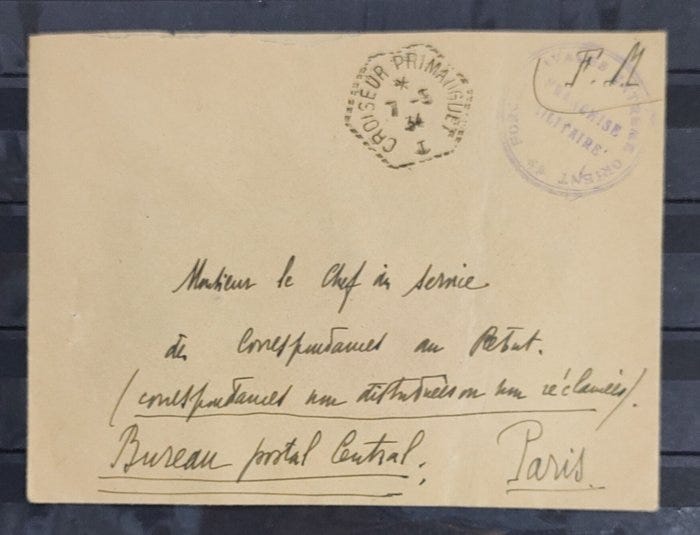 CROISEUR PRIMAUGUET
F.M
FORCES NAVALES EXTREME ORIENT
FRANCHISE
MILITAIRE
Monsieur le Chef du service
des Correspondances au Rebut.
(correspondances non distribuées ou non réclamées).
Bureau postal Central. Paris.